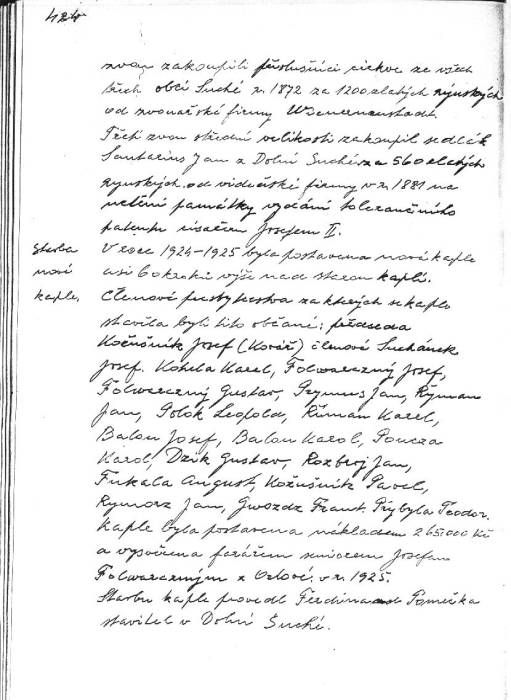 424
zvon zakoupili příslušníci církve ze všech
třech obcí Suché r. 1872 za 1200 zlatých rýnských
od zvonařské firmy W. Neustadt.
Třetí zvon střední velikosti zakoupil sedlák
Santarius Jan z Dolní Suché za 560 zlatých
rynských od vídeňské firmy v r. 1881 na
uctění památky vydání tolerančního
patentu císařem Josefem II.
Stavba
nové
kaple.
V roce 1924-1925 byla postavena nová kaple
asi 60 kroků výše nad starou kaplí.
Členové presbyterstva za kterých se kaple
stavěla byli tito občané; předseda
Kožušník Josef (Kovář) členové Suchánek
Josef. Kohla Karel, Folwarczný Josef,
Folwarczný Gustav, Prymus Jan, Ryman
Jan, Polok Leopold, Ruman Karel,
Balon Josef, Balon Karol, Poucza
Karol, Dzik Gustav, Rozbroj Jan,
Fukala August, Kožušník Pavel,
Rymorz Jan, Gwozdz Frant. Przybyla Teodor.
Kaple byla postavena nákladem 265.000 Kč
a vysvěcena farářem seniorem Josefem
Folwarczným z Orlové. v r. 1925.
Stavbu kaple provedl Ferdinand Pomečka
stavitel v Dolní Suché.